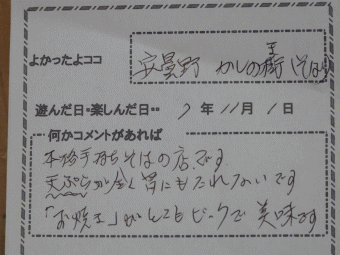 よかったよココ
安曇野 かしの樹 (そば
遊んだ日・楽しんだ日・・ 7 年 11 月 1 日
何かコメントがあれば
本格手打ちそばの店です
天ぷらが全く胃にもたれないです
「お焼き」がとてもビックで美味です